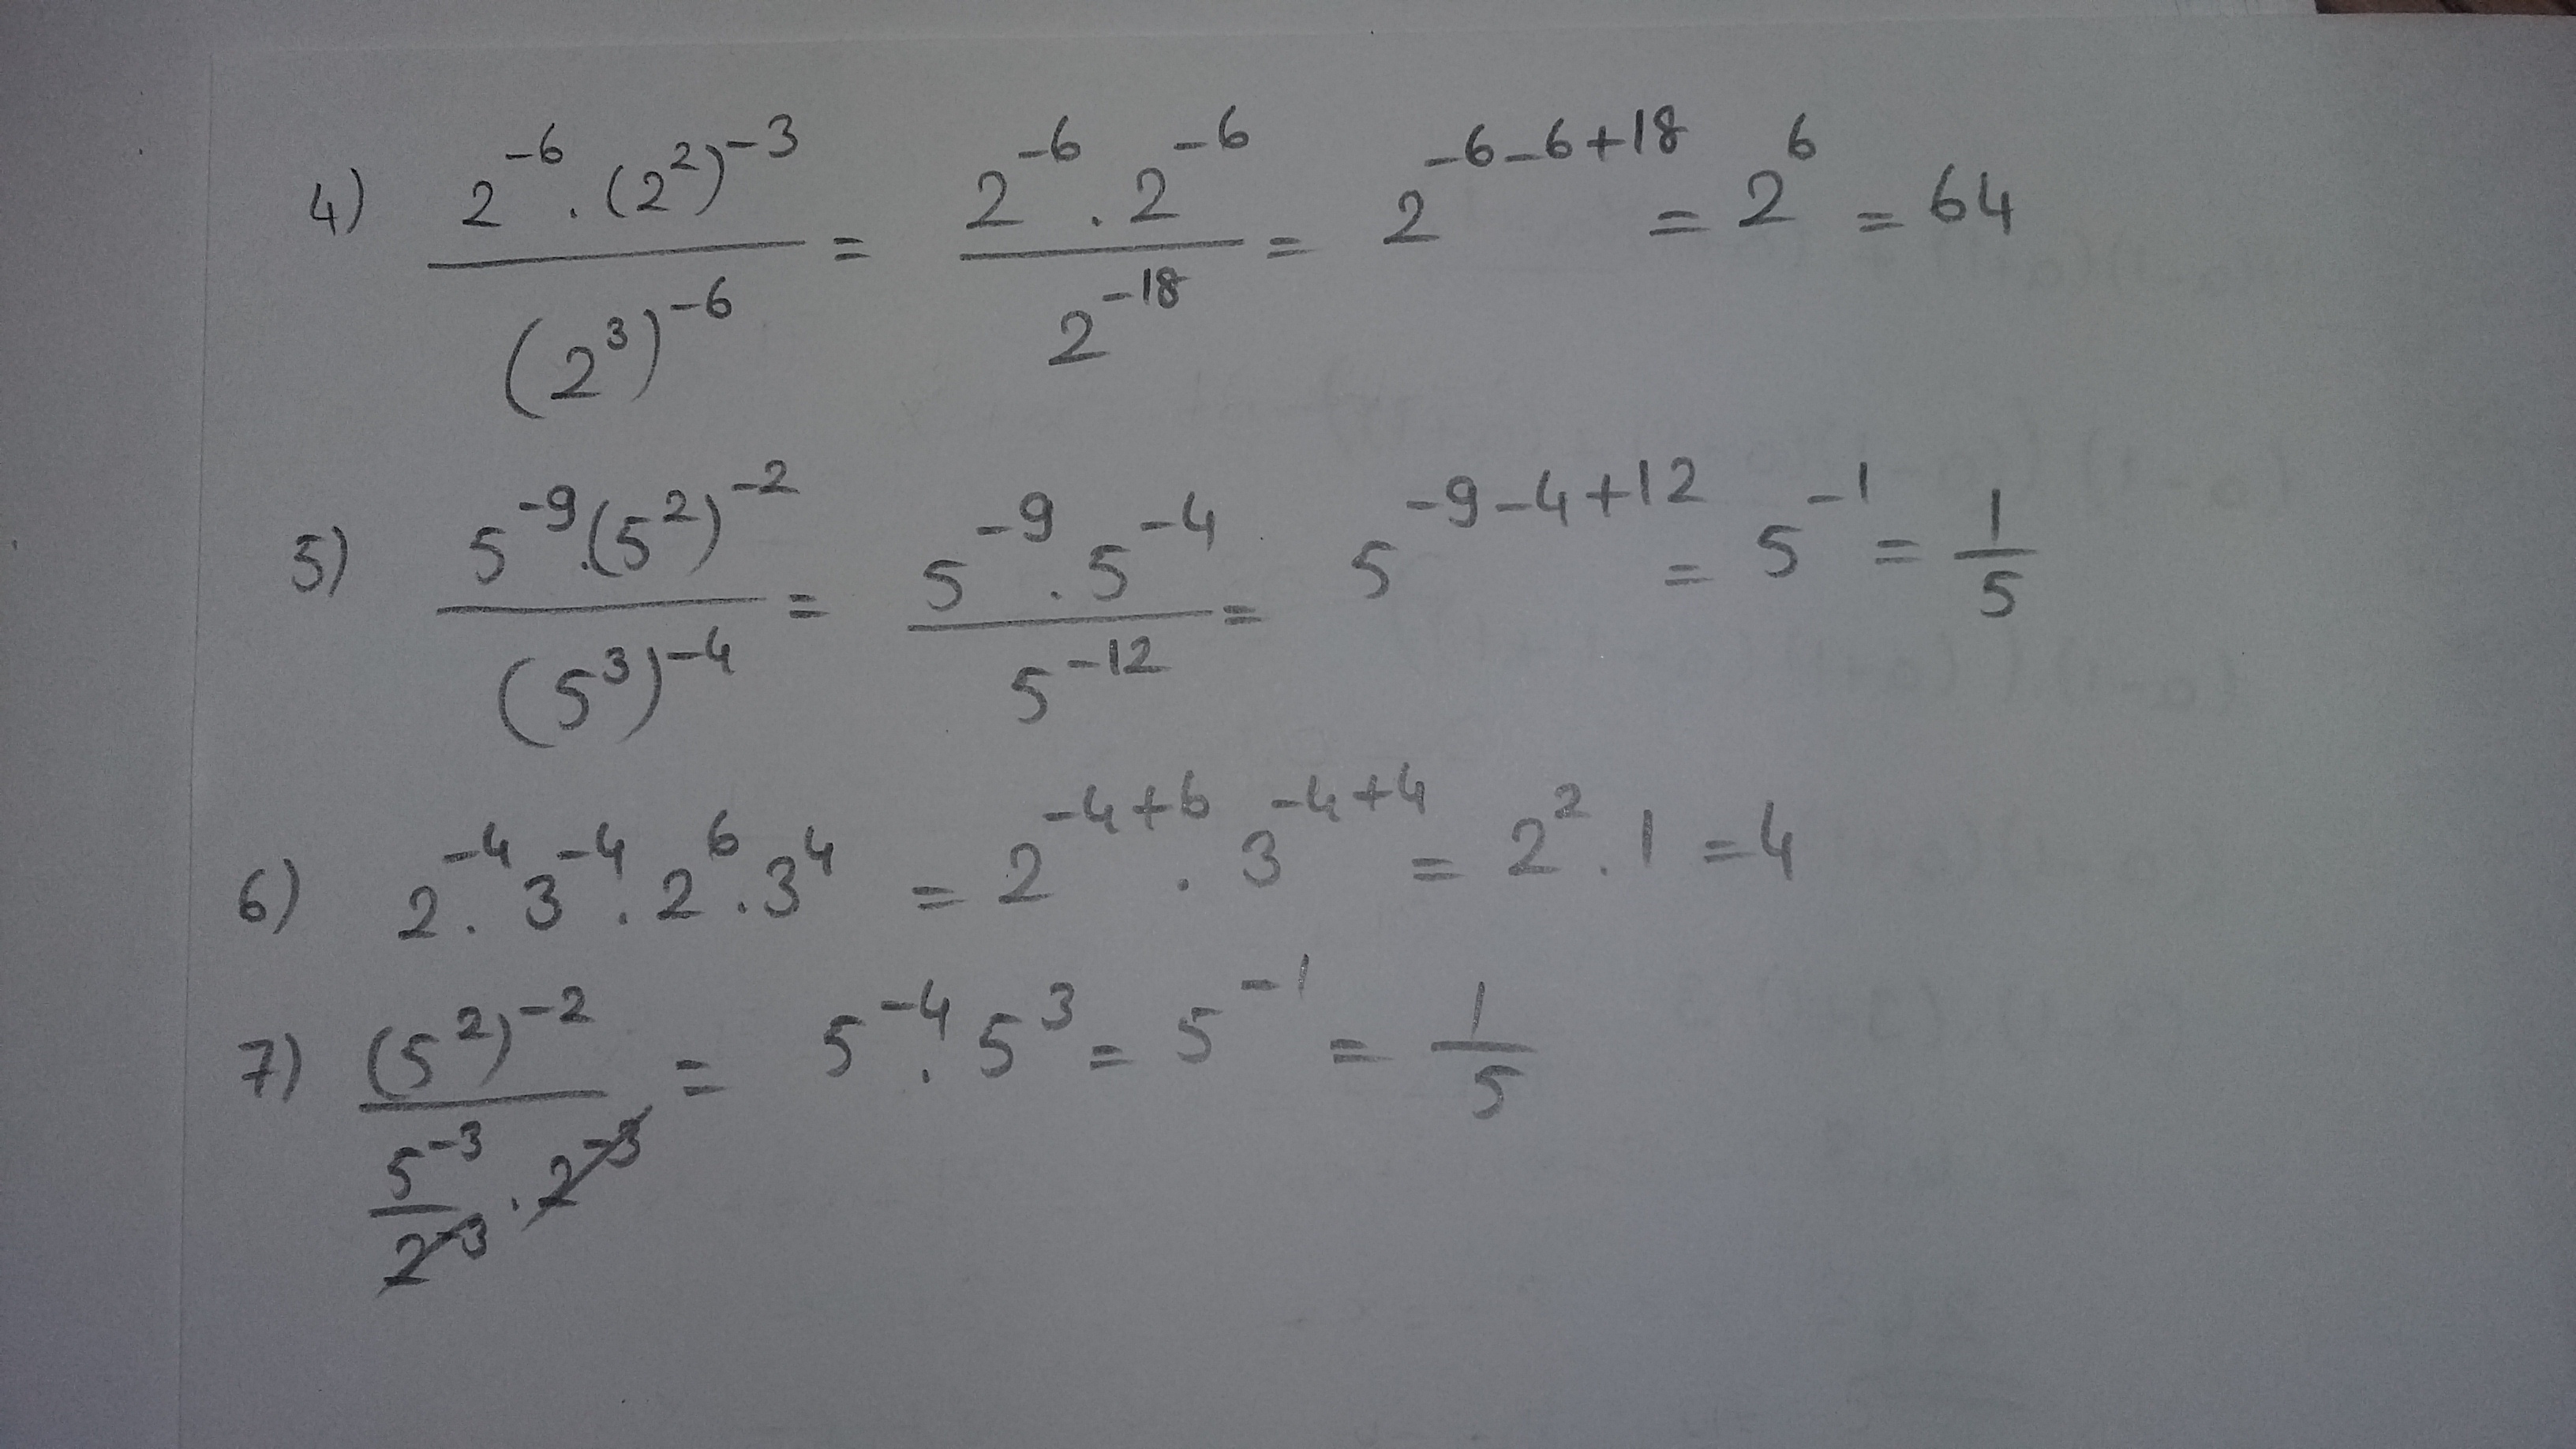 4) \frac{2^{-6} . (2^2)^{-3}}{(2^3)^{-6}} = \frac{2^{-6} . 2^{-6}}{2^{-18}} = 2^{-6-6+18} = 2^6 = 64
5) \frac{5^{-9} . (5^2)^{-2}}{(5^3)^{-4}} = \frac{5^{-9} . 5^{-4}}{5^{-12}} = 5^{-9-4+12} = 5^{-1} = \frac{1}{5}
6) 2^{-4} . 3^{-4} . 2^6 . 3^4 = 2^{-4+6} . 3^{-4+4} = 2^2 . 1 = 4
7) \frac{(5^2)^{-2}}{\frac{5^{-3}}{2^{-3}} . 2^{-3}} = 5^{-4} . 5^3 = 5^{-1} = \frac{1}{5}